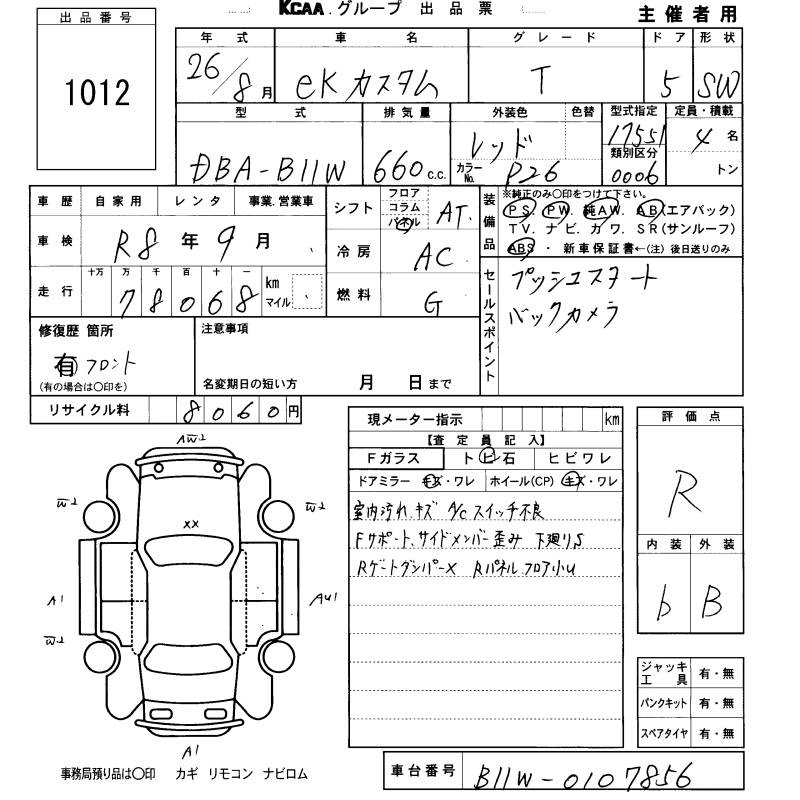 KCAA.グループ 出品票
主催者用
出品番号
1012
年式 車名 グレード ドア 形状
26/8月 eKカスタム T 5 SW
型式 排気量 外装色 色替 型式指定 定員・積載
DBA-B11W 660 c.c. レッド 17551 4名
カラーNo. P26 類別区分 0006 トン
車歴 自家用 レンタ 事業.営業車
車検 R8年9月
走行 十万 万 千 百 十 一 km マイル
78068
シフト フロア コラム パネル AT.
冷房 AC
燃料 G
装備品 ※純正のみ○印をつけて下さい.
PS. PW. 純AW. AB(エアバック)
TV. ナビ. カワ. SR(サンルーフ)
ABS ・新車保証書←(注)後日送りのみ
セールスポイント
プッシュスタート
バックカメラ
修復歴 箇所
有 フロント
(有の場合は○印を)
注意事項
名変期日の短い方 月 日まで
リサイクル料 8060円
現メーター指示 km
【査定員記入】
Fガラス トビ石 ヒビワレ
ドアミラー キズ・ワレ ホイール(CP) キズ・ワレ
室内汚れ、キズ A/Cスイッチ不良
Fサポート、サイドメンバー歪み 下廻りS
RゲートダンパーX Rパネル、フロア小U
評価点
R
内装 外装
b B
ジャッキ工具 有・無
パンクキット 有・無
スペアタイヤ 有・無
AW2
W2 W2
XX
A1 AU1
W2 W2
A1
事務局預り品は○印 カギ リモコン ナビロム
車台番号 B11W-0107856